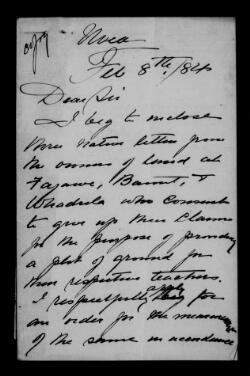 copy
Nuea
Feb 8th /84
Dear Sir
I beg to enclose
three native letters from
the owners of land at
Fagawe, Barnt, &
Whadula who consent
to give up their claims
for the purpose of providing
a plot of ground for
their respective teachers.
I respectfully apply for
an order for the measuring
of the same in accordance